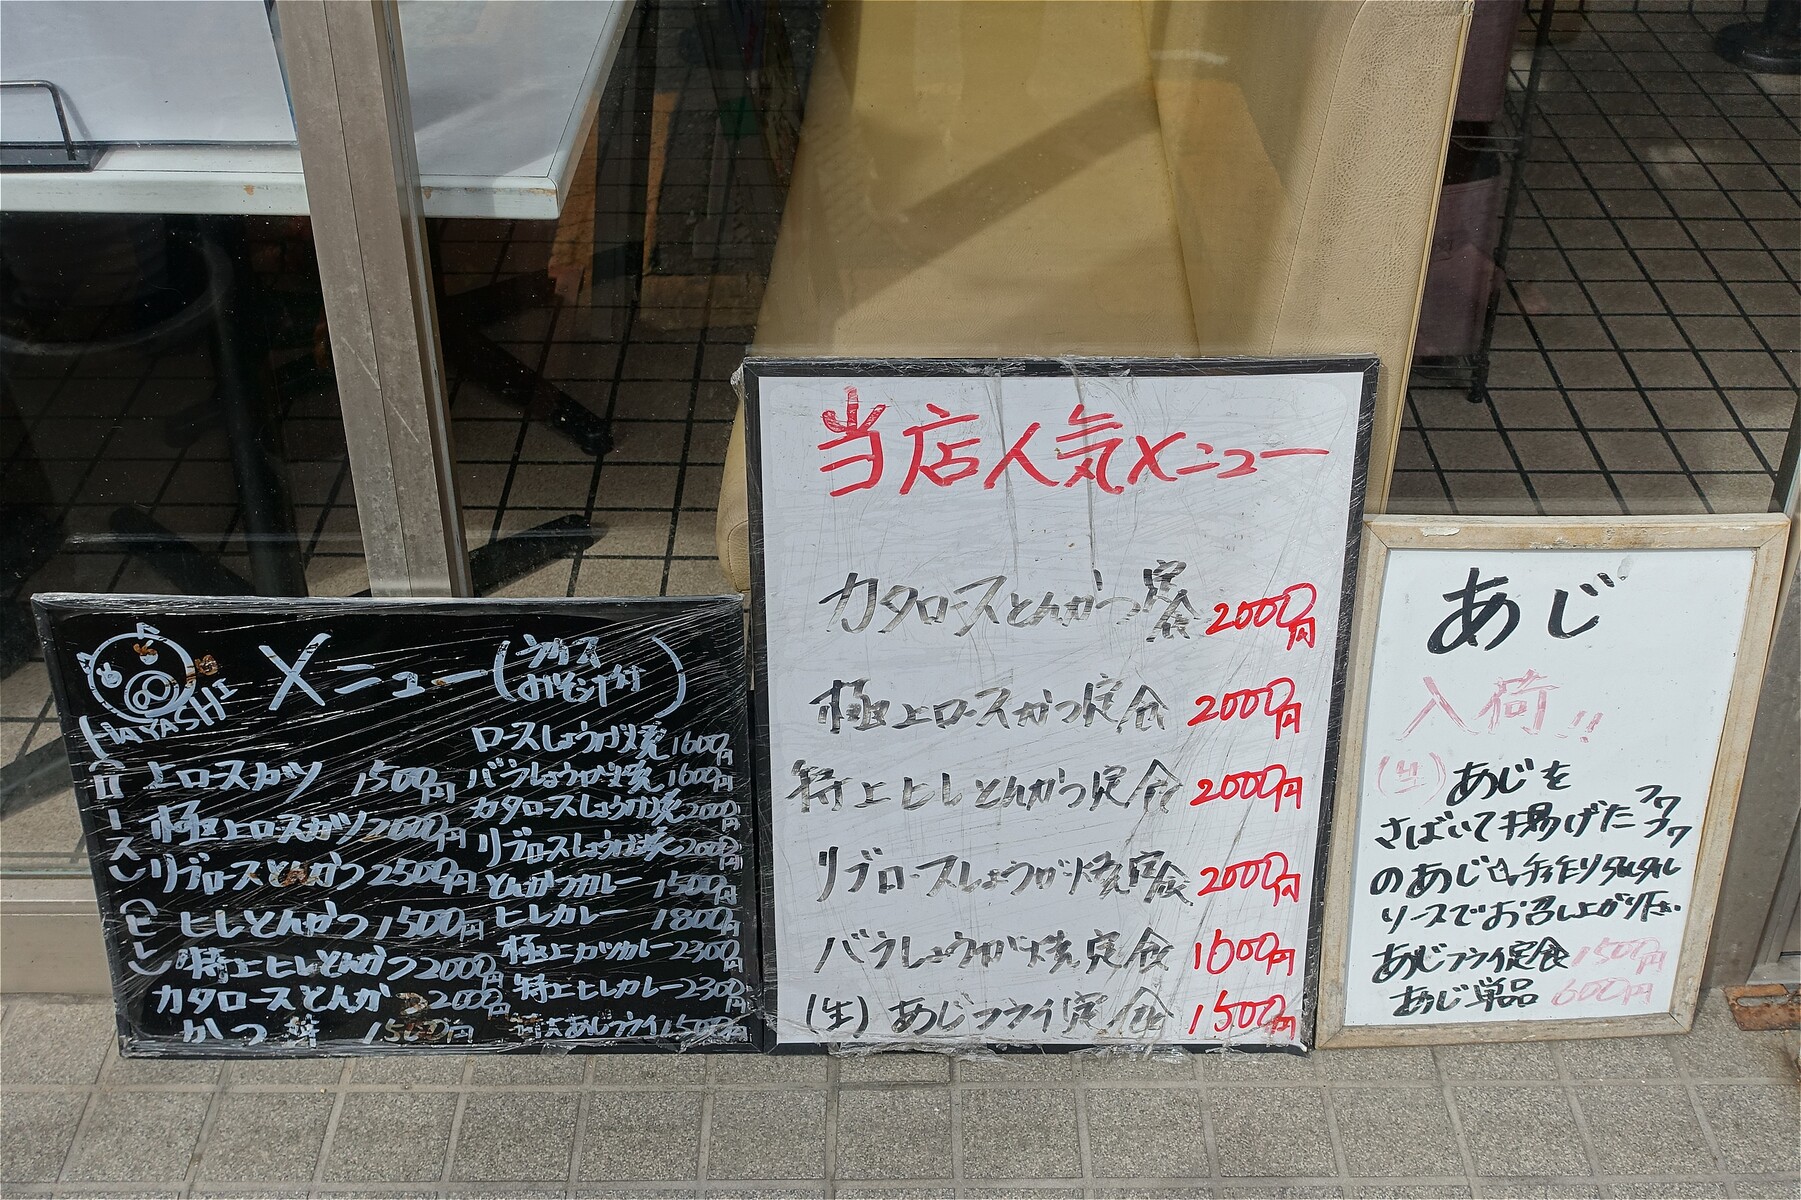 HAYASHI
メニュー(ライス おみそ汁付)
(ロース)
上ロースカツ 1500円
極上ロースカツ 2000円
リブロースとんかつ 2500円
(ヒレ)
ヒレとんかつ 1500円
特上ヒレとんかつ 2000円
カタロースとんかつ 2000円
かつ丼 1500円
ロースしょうが焼 1600円
バラしょうが焼 1600円
カタロースしょうが焼 2000円
リブロースしょうが焼 2000円
とんかつカレー 1500円
ヒレカレー 1800円
極上カツカレー 2300円
特上ヒレカレー 2300円
あじフライ 1500円
当店人気メニュー
カタロースとんかつ定食 2000円
極上ロースかつ定食 2000円
特上ヒレとんかつ定食 2000円
リブロースしょうが焼定食 2000円
バラしょうが焼定食 1600円
(生)あじフライ定食 1500円
あじ
入荷!!
(生)あじを
さばいて揚げたフワフワ
のあじを手作りタルタル
ソースでお召し上がり下さい
あじフライ定食 1500円
あじ単品 600円